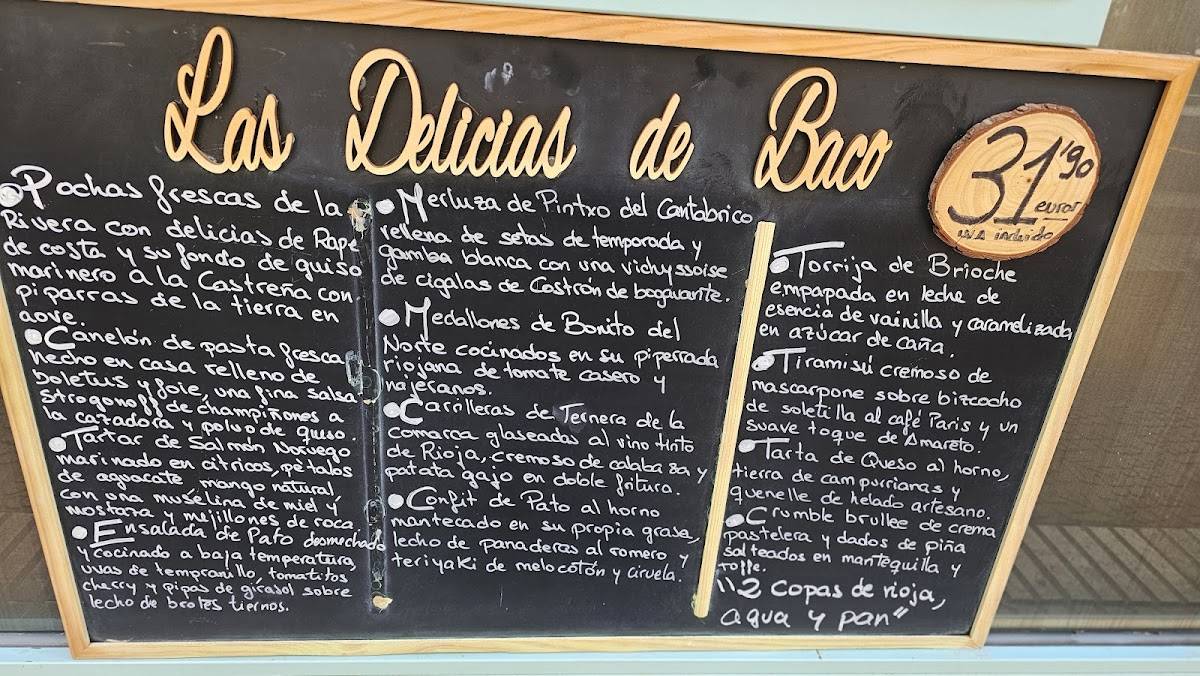 Las Delicias de Baco
31'90
euros
IVA incluido
Pochas frescas de la
Rivera con delicias de Rape
de costa y su fondo de guiso
marinero a la Castreña con
piparras de la tierra en
aove.
Canelón de pasta fresca
hecho en casa relleno de
boletus y foie, una fina salsa
strogonoff de champiñones a
la cazadora y polvo de queso.
Tartar de Salmón Noruego
marinado en cítricos, pétalos
de aguacate, mango natural,
con una muselina de miel y
mostaza y mejillones de roca.
Ensalada de Pato desmechado
y cocinado a baja temperatura,
uvas de tempranillo, tomatitos
cherry y pipas de girasol sobre
lecho de brotes tiernos.
Merluza de Pintxo del Cantabrico
rellena de setas de temporada y
gamba blanca con una vichyssoise
de cigalas de Castrón de bogavante.
Medallones de Bonito del
Norte cocinados en su piperrada
riojana de tomate casero y
najeranos.
Carrilleras de Ternera de la
comarca glaseadas al vino tinto
de Rioja, cremoso de calabaza y
patata gajo en doble fritura.
Confit de Pato al horno
mantecado en su propia grasa,
lecho de panaderas al romero y
teriyaki de melocotón y ciruela.
Torrija de Brioche
empapada en leche de
esencia de vainilla y caramelizada
en azúcar de caña.
Tiramisú cremoso de
mascarpone sobre bizcocho
de soletilla al café Paris y un
suave toque de Amareto.
Tarta de Queso al horno,
tierra de campurrianas y
quenelle de helado artesano.
Crumble brullee de crema
pastelera y dados de piña
salteados en mantequilla y
toffe.
"2 copas de rioja,
agua y pan"